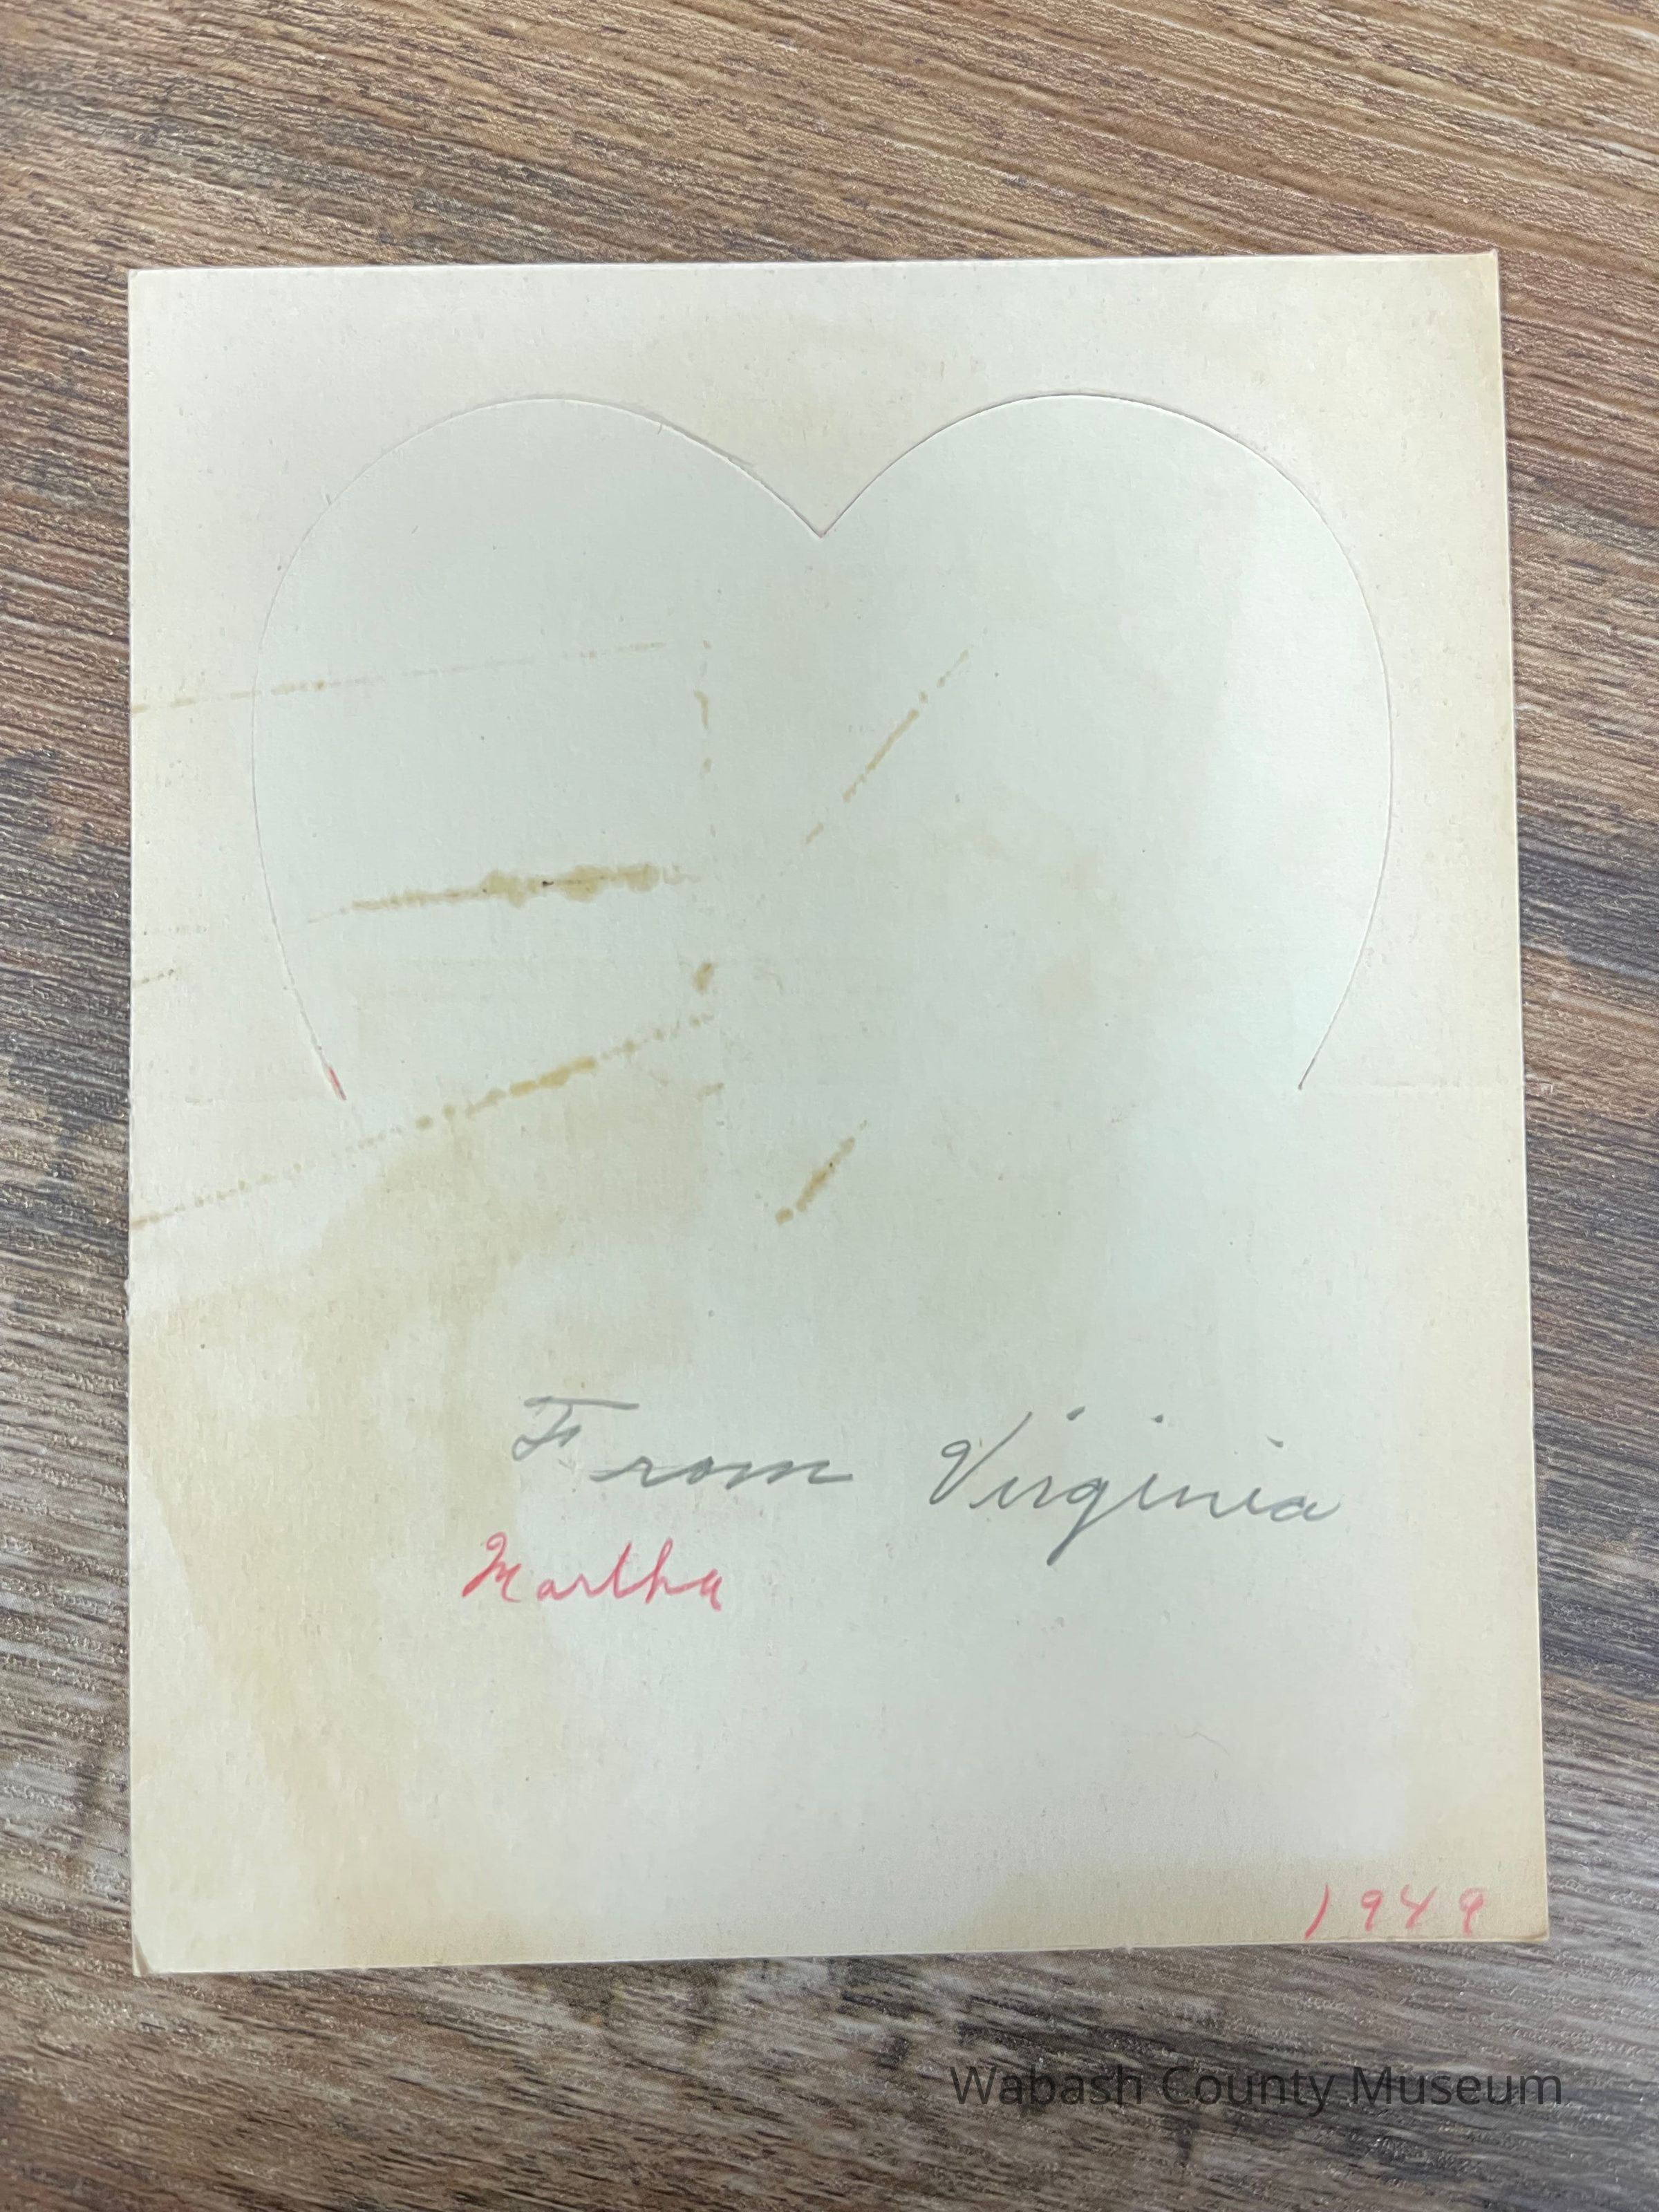 From Virginia
Martha
1949
Wabash County Museum